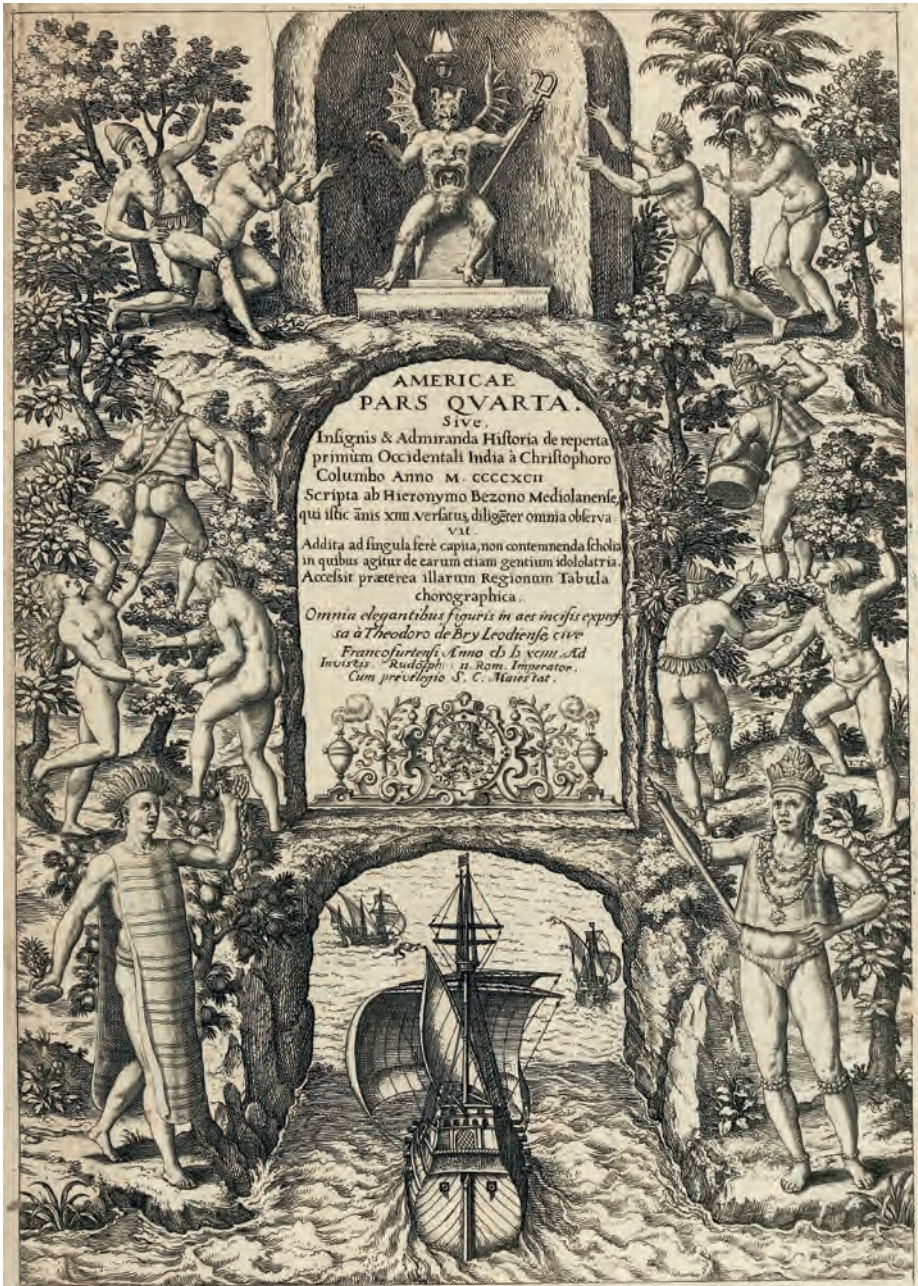 AMERICAE
PARS QVARTA.
Sive,
Inſignis & Admiranda Hiſtoria de reperta
primùm Occidentali India à Chriſtophoro
Columbo Anno M. CCCCXCII
Scripta ab Hieronymo Bezono Mediolanense,
qui iſtic ānis XIIII verſatus, diligēter omnia obſerva
vit.
Addita ad ſingula ferè capita, non contemnenda ſcholia
in quibus agitur de earum etiam gentium idololatria.
Acceſsit præterea illarum Regionum Tabula
chorographica.
Omnia elegantibus figuris in aes inciſis expreſ-
ſa à Theodoro de Bry Leodienſe, cive
Francofurtenſi Anno cIɔ Iɔ XCIIII. Ad
Invictis Rudolph: II. Rom. Imperator.
Cum previlegio S. C. Maiestat.